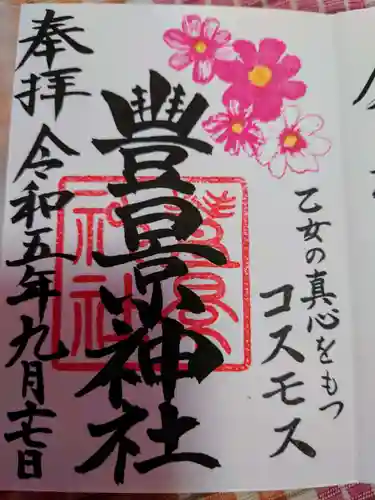 乙女の真心をもつ
コスモス
豊景神社
奉拝
令和五年九月十七日